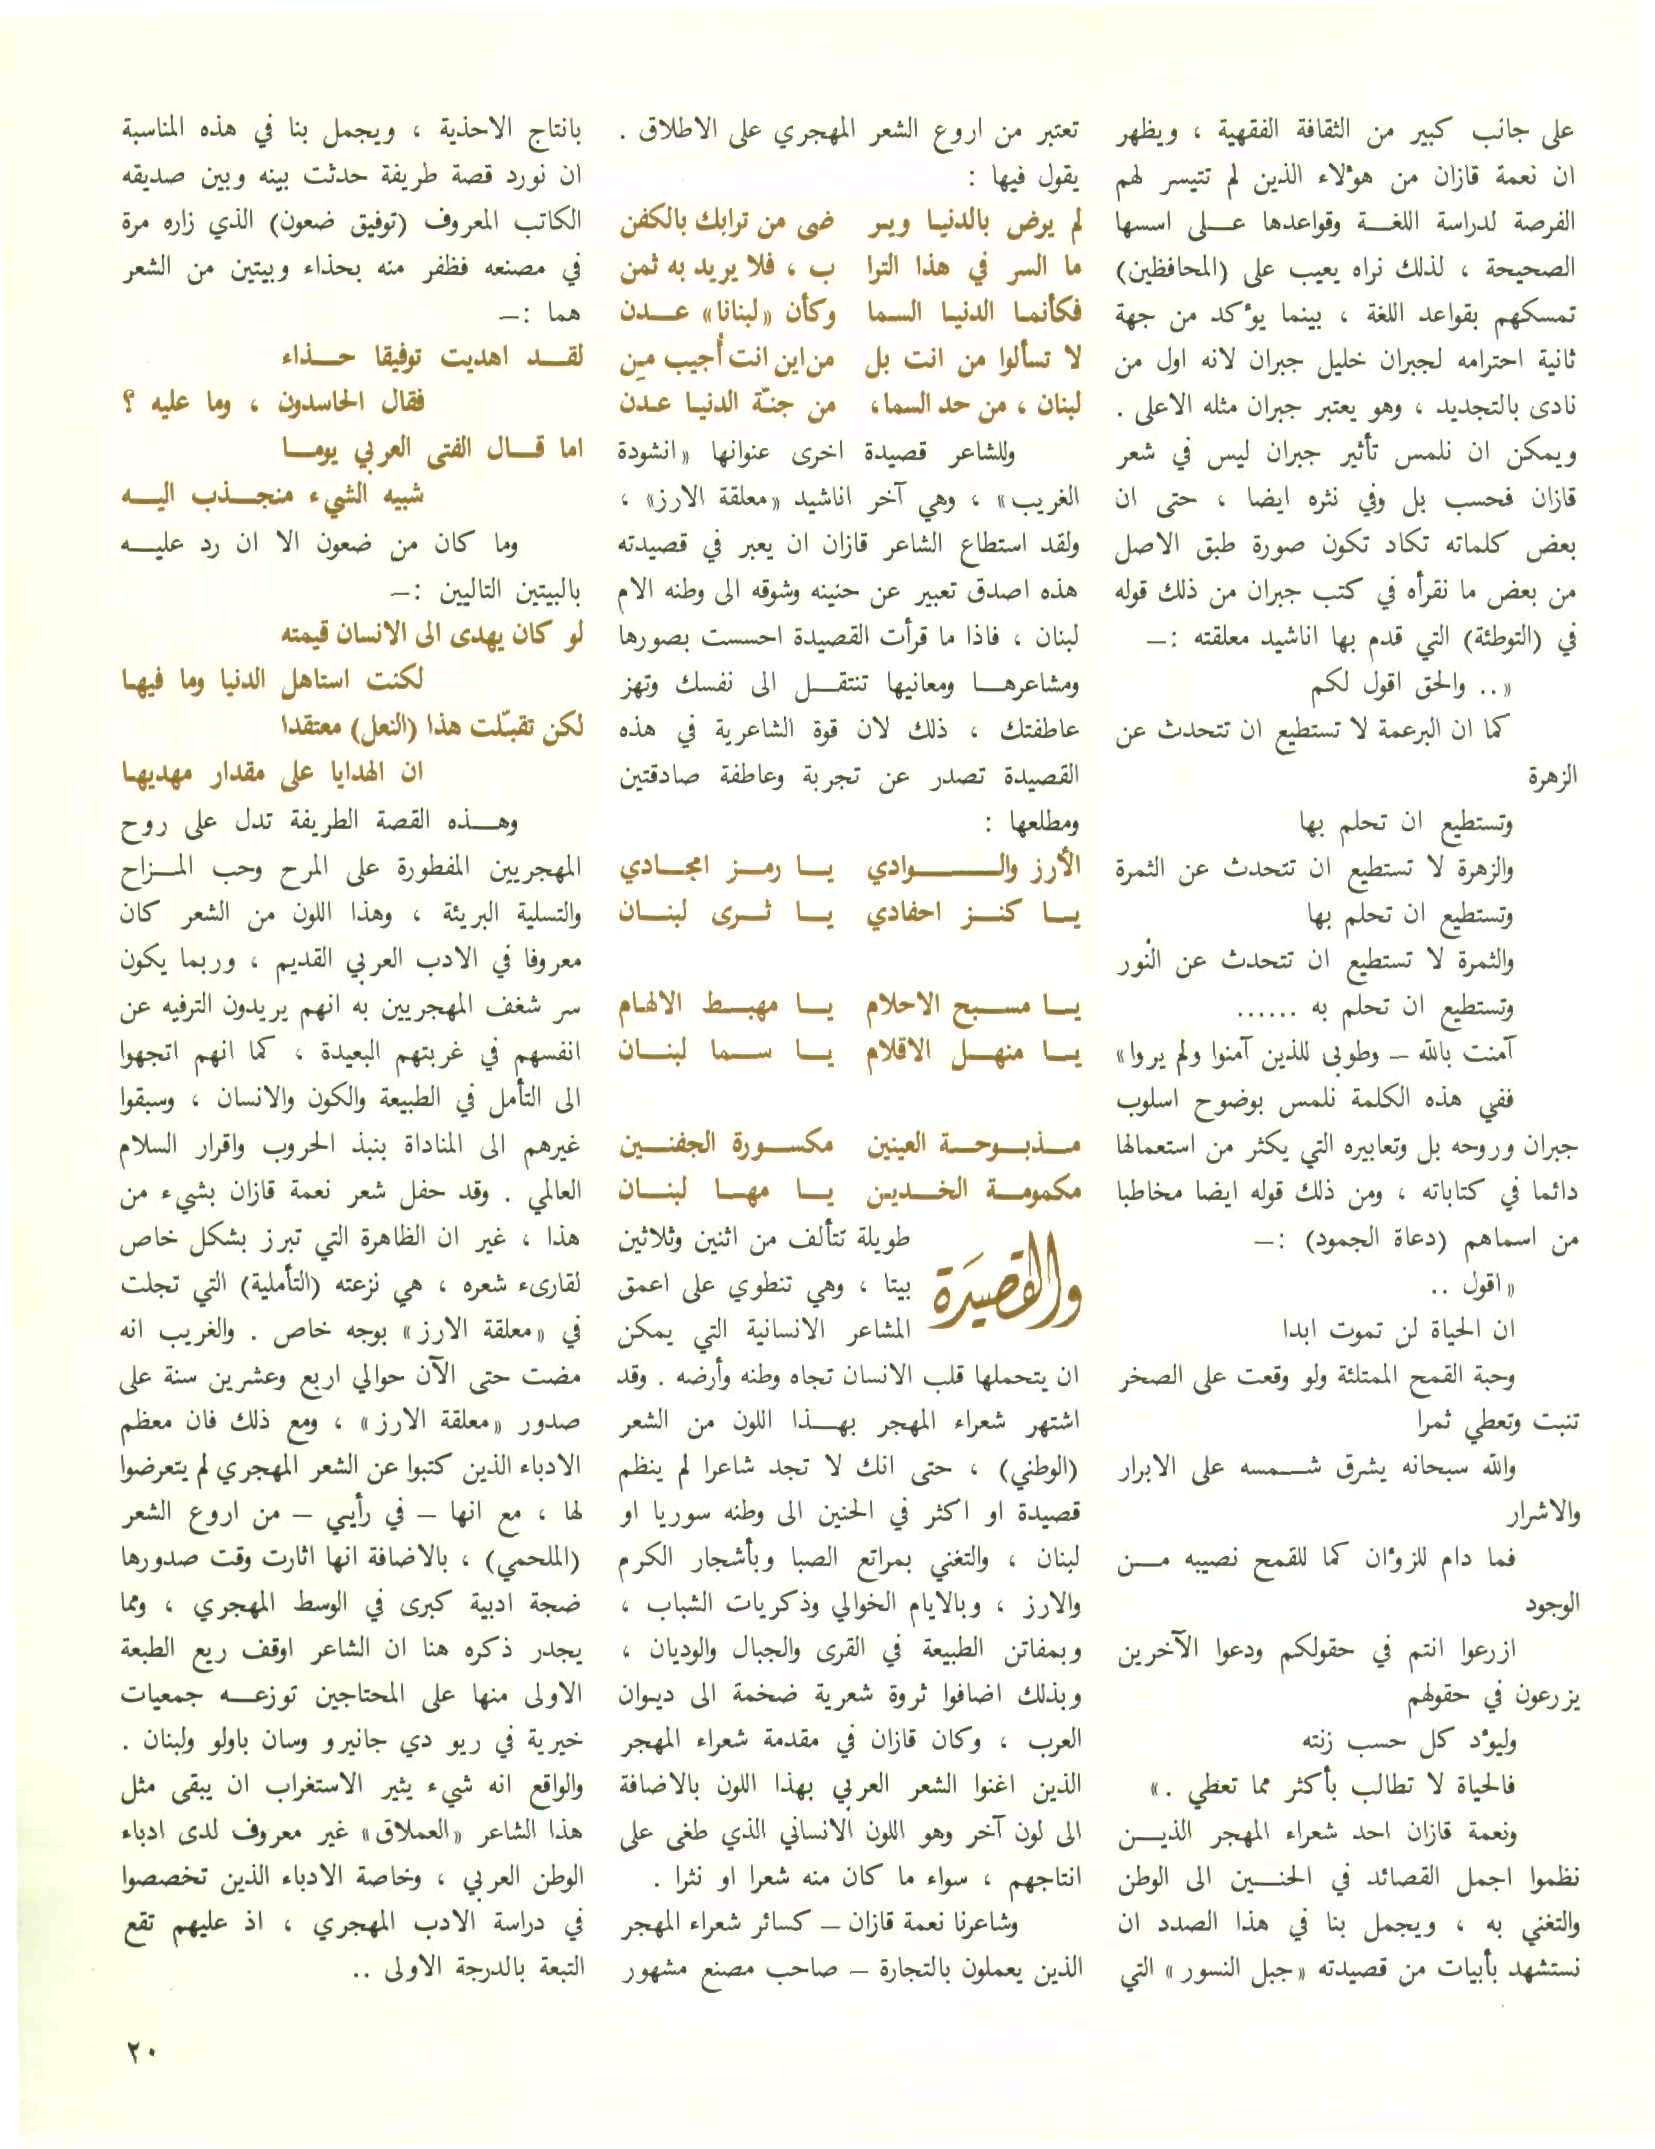 على جانب كبير من الثقافة الفقهية ، ويظهر
ان نعمة قازان من هؤلاء الذين لم تتيسر لهم
الفرصة لدراسة اللغـــة وقواعدها عـــلى اسسها
الصحيحة ، لذلك نراه يعيب على (المحافظين)
تمسكهم بقواعد اللغة ، بينما يؤكد من جهة
ثانية احترامه لجبران خليل جبران لانه اول من
نادى بالتجديد ، وهو يعتبر جبران مثله الاعلى .
ويمكن ان نلمس تأثير جبران ليس في شعر
قازان فحسب بل وفي نثره ايضا ، حتى ان
بعض كلماته تكاد تكون صورة طبق الاصل
من بعض ما نقرأه في كتب جبران من ذلك قوله
في (التوطئة) التي قدم بها اناشيد معلقته :–
« .. والحق اقول لكم
كما ان البرعمة لا تستطيع ان تتحدث عن
الزهرة
وتستطيع ان تحلم بها
والزهرة لا تستطيع ان تتحدث عن الثمرة
وتستطيع ان تحلم بها
والثمرة لا تستطيع ان تتحدث عن النُور
وتستطيع ان تحلم به ......
آمنت بالله – وطوبى للذين آمنوا ولم يروا»
ففي هذه الكلمة نلمس بوضوح اسلوب
جبران وروحه بل وتعابيره التي يكثر من استعمالها
دائما في كتاباته ، ومن ذلك قوله ايضا مخاطبا
من اسماهم (دعاة الجمود) :–
« اقول ..
ان الحياة لن تموت ابدا
وحبة القمح الممتلئة ولو وقعت على الصخر
تنبت وتعطي ثمرا
والله سبحانه يشرق شــمسه على الابرار
والاشرار
فما دام للزؤان كما للقمح نصيبه مـــن
الوجود
ازرعوا انتم في حقولكم ودعوا الآخرين
يزرعون في حقولهم
وليؤد كل حسب زنته
فالحياة لا تطالب بأكثر مما تعطي . »
ونعمة قازان احد شعراء المهجر الذيــن
نظموا اجمل القصائد في الحنـــين الى الوطن
والتغني به ، ويجمل بنا في هذا الصدد ان
نستشهد بأبيات من قصيدته «جبل النسور» التي
تعتبر من اروع الشعر المهجري على الاطلاق .
يقول فيها :
لم يرض بالدنيـا ويـر ضى من ترابك بالكفن
ما السر في هذا الترا ب ، فلا يريد به ثمن
فكأنمـا الدنيـا السـما وكأن «لبنانا» عــدن
لا تسألوا من انت بل من اين انت أُجيب مين
لبنان ، من حد السما، من جنّـة الدنيـا عـدن
وللشاعر قصيدة اخرى عنوانها «انشودة
الغريب» ، وهي آخر اناشيد «معلقة الارز» ،
ولقد استطاع الشاعر قازان ان يعبر في قصيدته
هذه اصدق تعبير عن حنينه وشوقه الى وطنه الام
لبنان ، فاذا ما قرأت القصيدة احسست بصورها
ومشاعرهـا ومعانيها تنتقـــل الى نفسك وتهز
عاطفتك ، ذلك لان قوة الشاعرية في هذه
القصيدة تصدر عن تجربة وعاطفة صادقتين
ومطلعها :
الأرز والـــــوادي يـا رمـز امجـادي
يـا كنـز احفادي يـا ثـرى لبنـان
يـا مسـبح الاحلام يـا مهبـط الالهـام
يـا منهـل الاقلام يـا سـما لبنـان
مـذبـوحـة العينين مكسـورة الجفنـين
مكمومـة الخـدين يـا مهـا لبنـان
والقصيَدة طويلة تتألف من اثنين وثلاثين
بيتا ، وهي تنطوي على اعمق
المشاعر الانسانية التي يمكن
ان يتحملها قلب الانسان تجاه وطنه وأرضه . وقد
اشتهر شعراء المهجر بهـــذا اللون من الشعر
(الوطني) ، حتى انك لا تجد شاعرا لم ينظم
قصيدة او اكثر في الحنين الى وطنه سوريا او
لبنان ، والتغني بمراتع الصبا وبأشجار الكرم
والارز ، وبالايام الخوالي وذكريات الشباب ،
وبمفاتن الطبيعة في القرى والجبال والوديان ،
وبذلك اضافوا ثروة شعرية ضخمة الى ديـوان
العرب ، وكان قازان في مقدمة شعراء المهجر
الذين اغنوا الشعر العربي بهذا اللون بالاضافة
الى لون آخر وهو اللون الانساني الذي طغى على
انتاجهم ، سواء ما كان منه شعرا او نثرا .
وشاعرنا نعمة قازان – كسائر شعراء المهجر
الذين يعملون بالتجارة – صاحب مصنع مشهور
بانتاج الاحذية ، ويجمل بنا في هذه المناسبة
ان نورد قصة طريفة حدثت بينه وبين صديقه
الكاتب المعروف (توفيق ضعون) الذي زاره مرة
في مصنعه فظفر منه بحذاء وبيتين من الشعر
هما :–
لقـد اهديت توفيقا حـذاء
فقال الحاسدون ، وما عليه ؟
اما قـال الفتى العربي يومـا
شبيه الشيء منجـذب اليـه
وما كان من ضعون الا ان رد عليـــه
بالبيتين التاليين :–
لو كان يهدى الى الانسان قيمته
لكنت استاهل الدنيا وما فيها
لكن تقبّلت هذا (النعل) معتقدا
ان الهدايا على مقدار مهديها
وهـــذه القصة الطريفة تدل على روح
المهجريين المفطورة على المرح وحب المـــزاح
والتسلية البريئة ، وهذا اللون من الشعر كان
معروفا في الادب العربي القديم ، وربما يكون
سر شغف المهجريين به انهم يريدون الترفيه عن
انفسهم في غربتهم البعيدة ، كما انهم اتجهوا
الى التأمل في الطبيعة والكون والانسان ، وسبقوا
غيرهم الى المناداة بنبذ الحروب واقرار السلام
العالمي . وقد حفل شعر نعمة قازان بشيء من
هذا ، غير ان الظاهرة التي تبرز بشكل خاص
لقارىء شعره ، هي نزعته (التأملية) التي تجلت
في «معلقة الارز» بوجه خاص . والغريب انه
مضت حتى الآن حوالي اربع وعشرين سنة على
صدور «معلقة الارز» ، ومع ذلك فان معظم
الادباء الذين كتبوا عن الشعر المهجري لم يتعرضوا
لها ، مع انها – في رأيي – من اروع الشعر
(الملحمي) ، بالاضافة انها اثارت وقت صدورها
ضجة ادبية كبرى في الوسط المهجري ، ومما
يجدر ذكره هنا ان الشاعر اوقف ريع الطبعة
الاولى منها على المحتاجين توزعـــه جمعيات
خيرية في ريو دي جانيرو وسان باولو ولبنان .
والواقع انه شيء يثير الاستغراب ان يبقى مثل
هذا الشاعر «العملاق» غير معروف لدى ادباء
الوطن العربي ، وخاصة الادباء الذين تخصصوا
في دراسة الادب المهجري ، اذ عليهم تقع
التبعة بالدرجة الاولى ..
٢٠